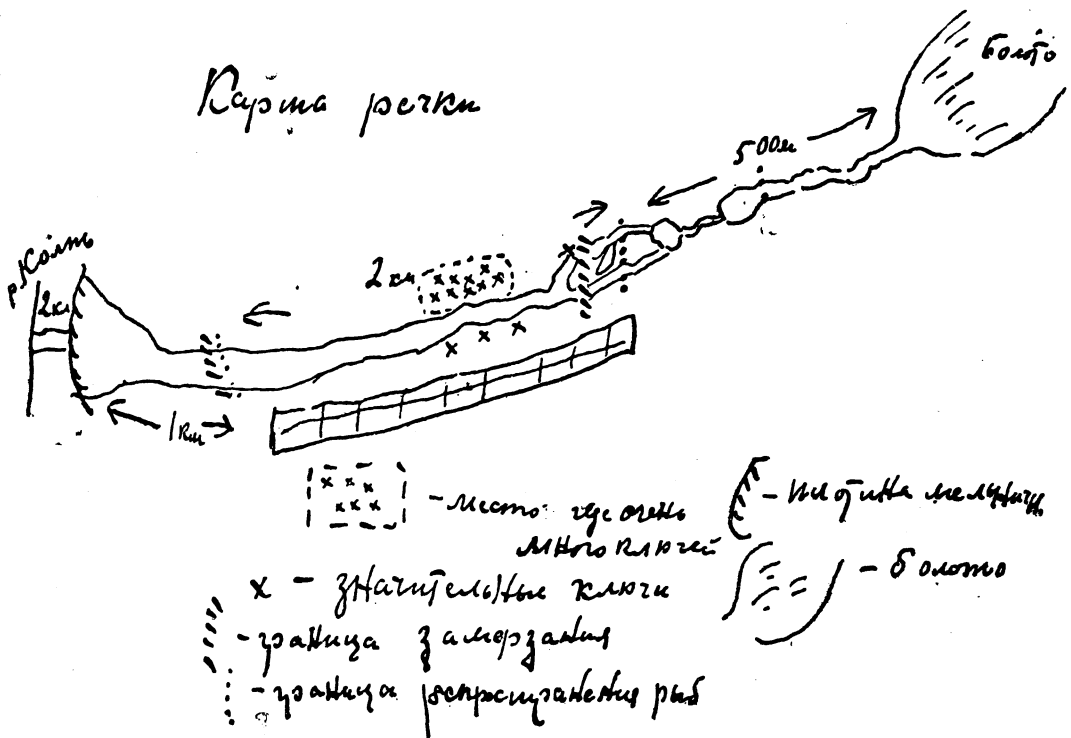 Карта речки
болото
500м
р. Колть
2км
2 км
1 км
- место где очень
много ключей
- плотина мельницы
х - значительные ключи
- болото
- граница замерзания
- граница распространения рыб